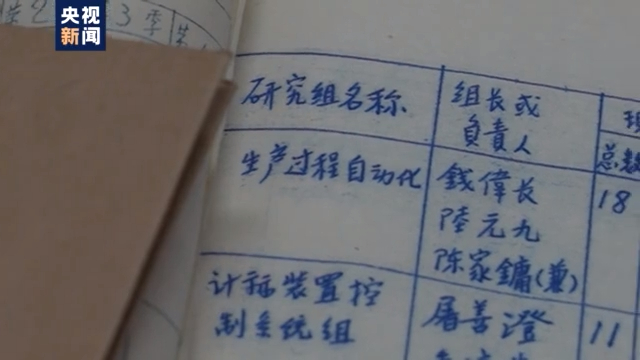 央视
新闻
第2 3季
研究组名称
组长或
负责人
总数
生产过程自动化
錢偉长
陸元九
陈家鏞(兼)
18
计标装置控
制系统组
屠善澄
11